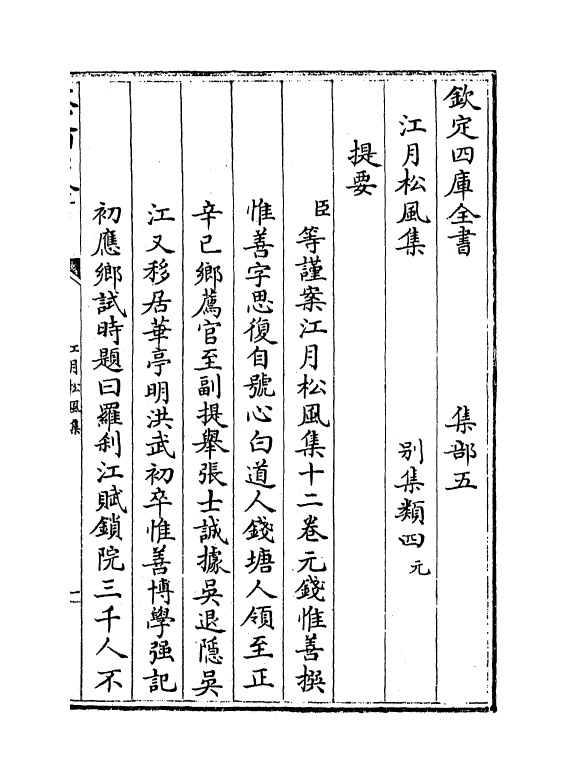 欽定四庫全書 集部五
江月松風集 別集類四元
提要
臣等謹案江月松風集十二卷元錢惟善撰
惟善字思復自號心白道人錢塘人領至正
辛已鄉薦官至副提舉張士誠據吳退隱吳
江又移居華亭明洪武初卒惟善博學强記
初應鄉試時題曰羅刹江賦鎖院三千人不
江月松風集